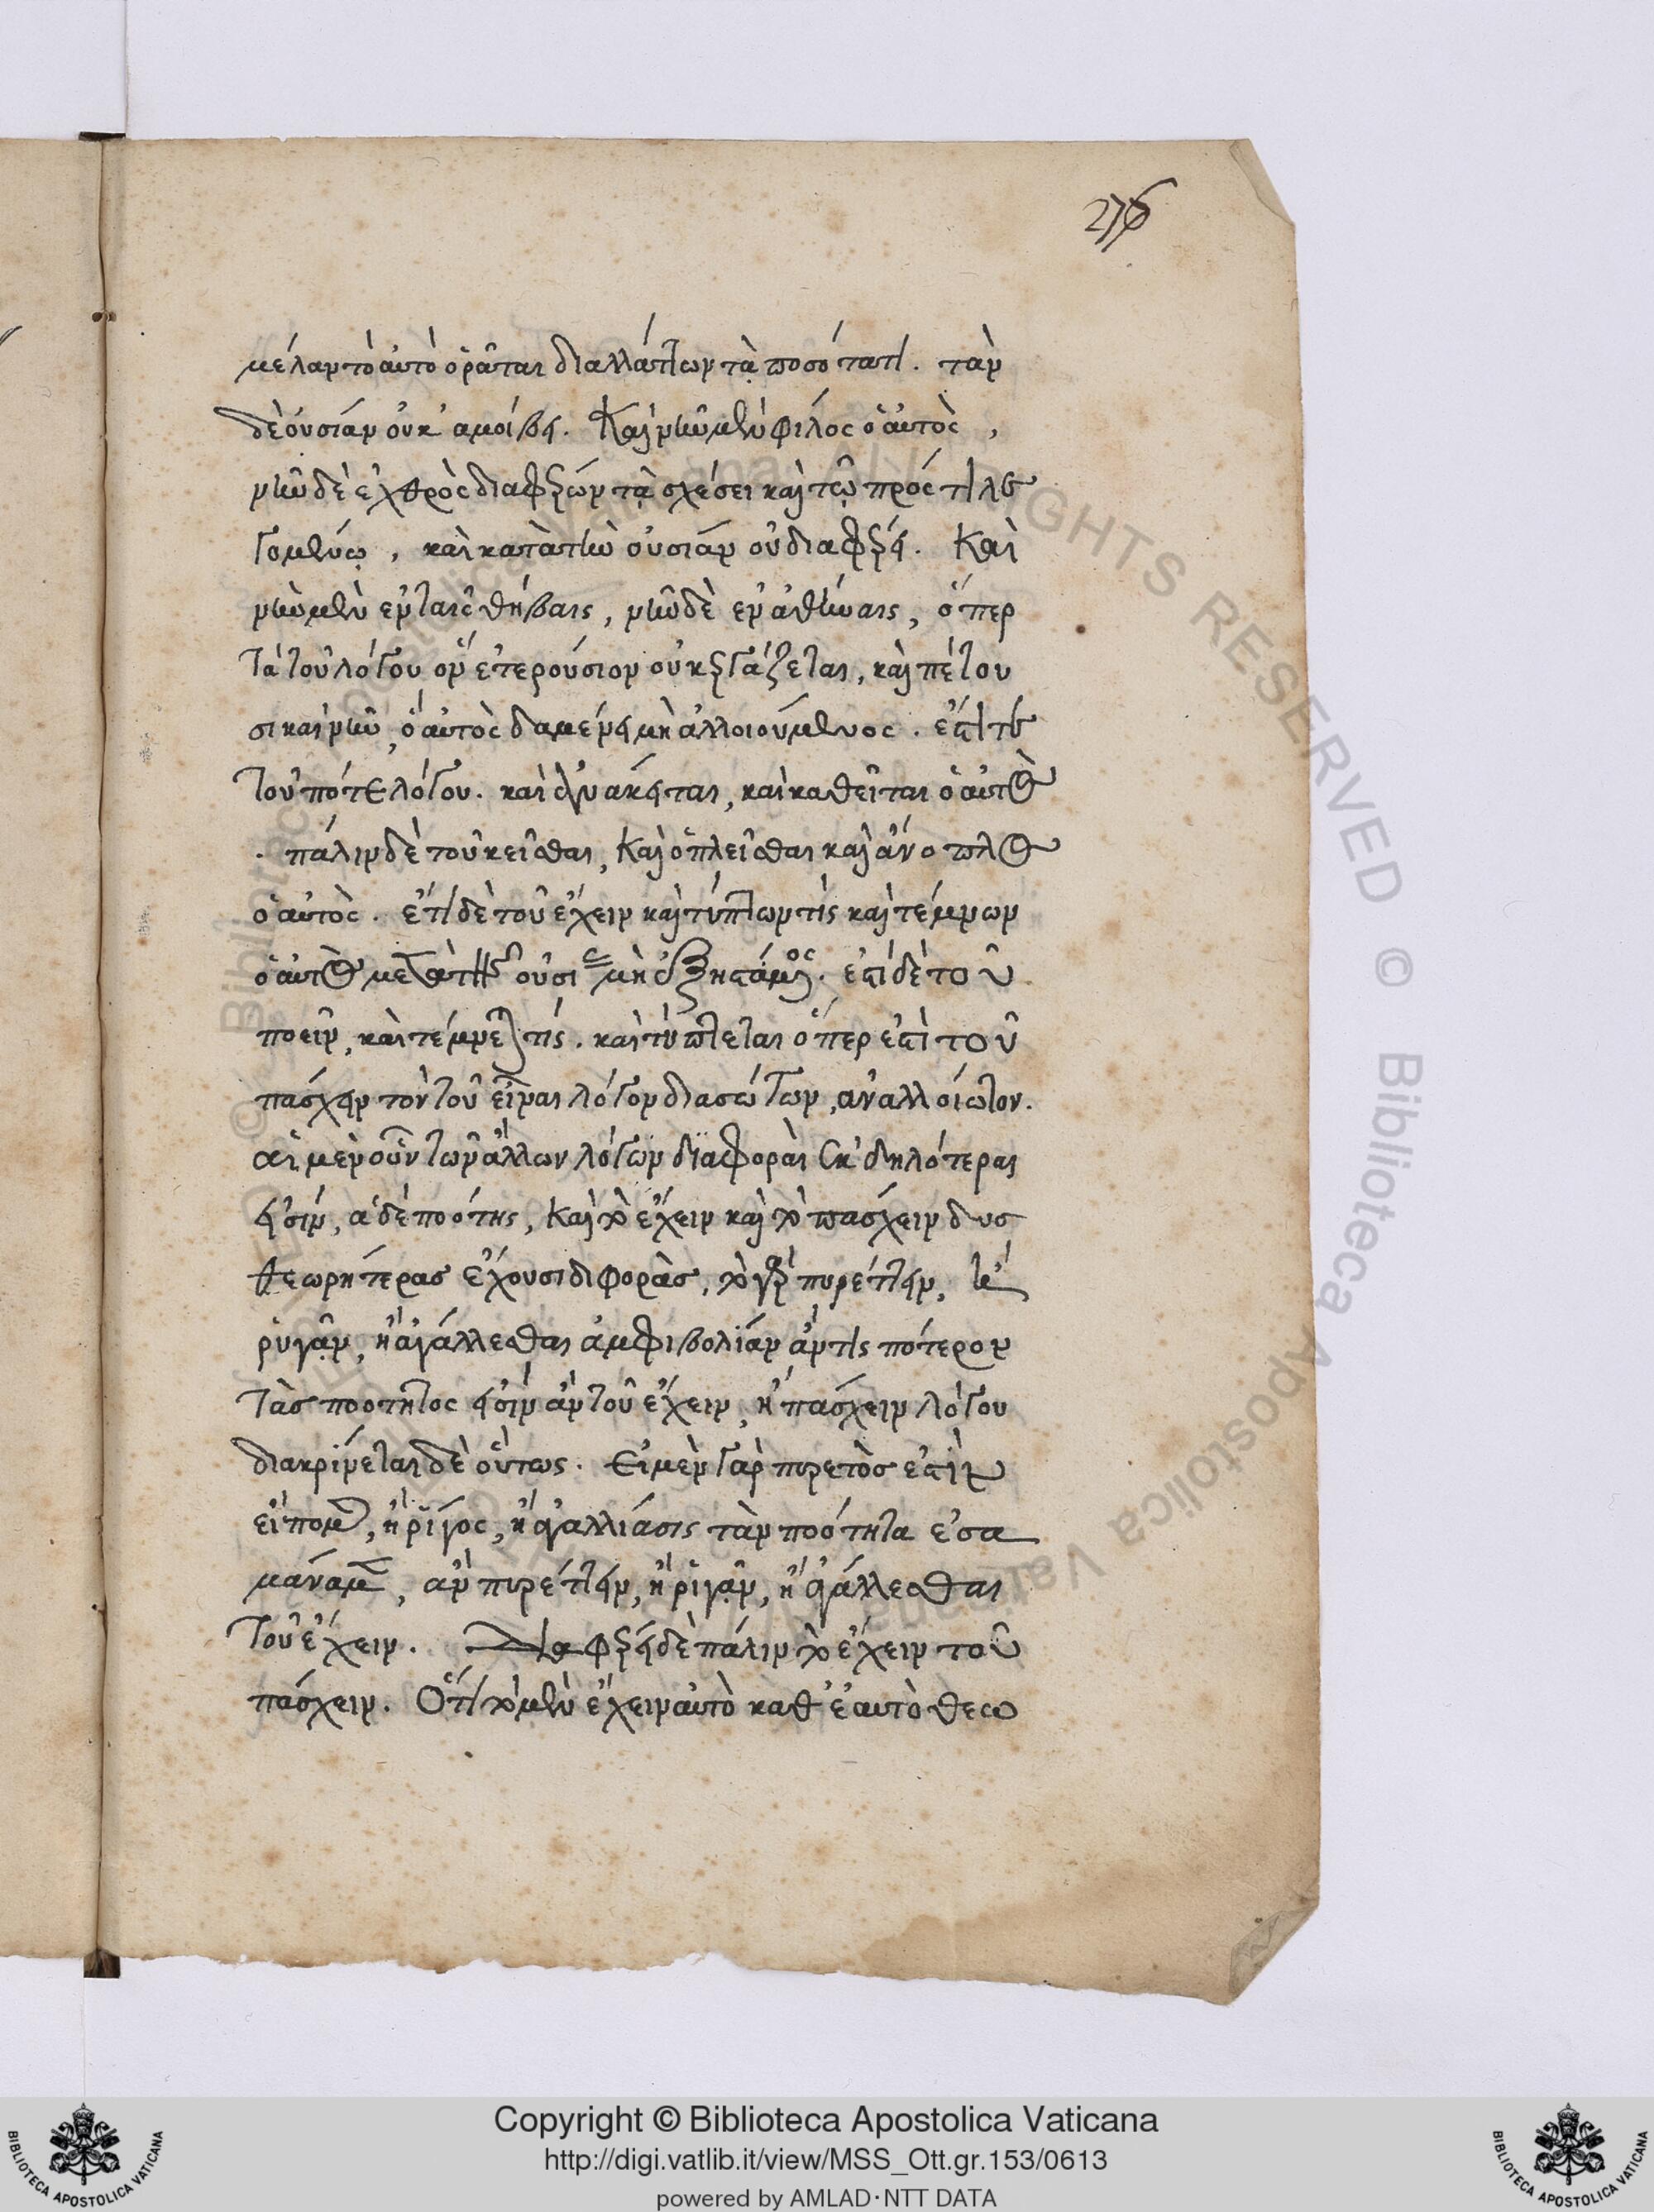 276
μέλαν τὸ αὐτὸ ὁρᾶται διαλλάττων τᾷ ποσότατι. τὰν
δὲ οὐσίαν οὐκ ἀμοίβει. Καὶ νῦν μὲν φίλος ὁ αὐτὸς,
νῦν δὲ ἐχθρὸς διαφέρων τᾷ σχέσει καὶ τῷ πρός τι λε
γομένῳ, καὶ κατὰ τὴν οὐσίαν οὐ διαφέρει. Καὶ
νῦν μὲν ἐν ταῖς θήβαις, νῦν δὲ ἐν ἀθήναις, ὅπερ
τὰ τοῦ λόγου ὃν ἑτερούσιον οὐκ ἐργάζεται, καὶ πέτου
σι καὶ νῦν, ὁ αὐτὸς διαμένει μὴ ἀλλοιούμενος. ἐστὶ
τοῦ πότε λόγου. καὶ ἀνακείται, καὶ καθεῖται ὁ αὐτὸς
. πάλιν δὲ τοῦ κεῖσθαι, Καὶ ὁπλεῖσθαι καὶ ἄνοπλος
ὁ αὐτὸς. ἔτι δὲ τοῦ ἔχειν καὶ τύπτων τὶς καὶ τέμνων
ὁ αὐτὸς μετὰ τῆς οὐσίας μὴ ἐξηστάμενος. ἐστὶ δὲ τοῦ
ποιεῖν, καὶ τέμνεται τίς. καὶ τύπτεται ὅπερ ἐστὶ τοῦ
πάσχειν τὸν τοῦ εἶναι λόγον διασώζων, ἀναλλοίωτον.
αἱ μὲν οὖν τῶν ἄλλων λόγων διαφοραὶ ἐκδηλότεραι
εἰσὶν, ἁ δὲ ποότης, Καὶ τὸ ἔχειν καὶ τὸ πάσχειν δυσ
θεωρητέρας ἔχουσι διφορὰς, τὸ γὰρ πυρέττειν, καὶ
ῥιγᾶν, ἢ ἀγάλλεσθαι ἀμφιβολίαν ἄν τις πότερον
τᾶς ποότητος εἰσὶν ἂν τοῦ ἔχειν, ἢ πάσχειν λόγου
διακρίνεται δὲ οὕτως. Εἰ μὲν γὰρ πυρετὸς ἐστὶν
εἴπομεν, ἢ ῥῖγος, ἢ ἀγαλλιάσις τὰν ποότητα ἐσα
μάναμεν, ἂν πυρέττειν, ἢ ῥιγᾶν, ἢ ἀγάλλεσθαι
τοῦ ἔχειν. Διαφέρει δὲ πάλιν τὸ ἔχειν τοῦ
πάσχειν. Ὅτι τὸ μὲν ἔχειν αὐτὸ καθ' ἑαυτὸ θεω
Copyright © Biblioteca Apostolica Vaticana
http://digi.vatlib.it/view/MSS_Ott.gr.153/0613
powered by AMLAD·NTT DATA